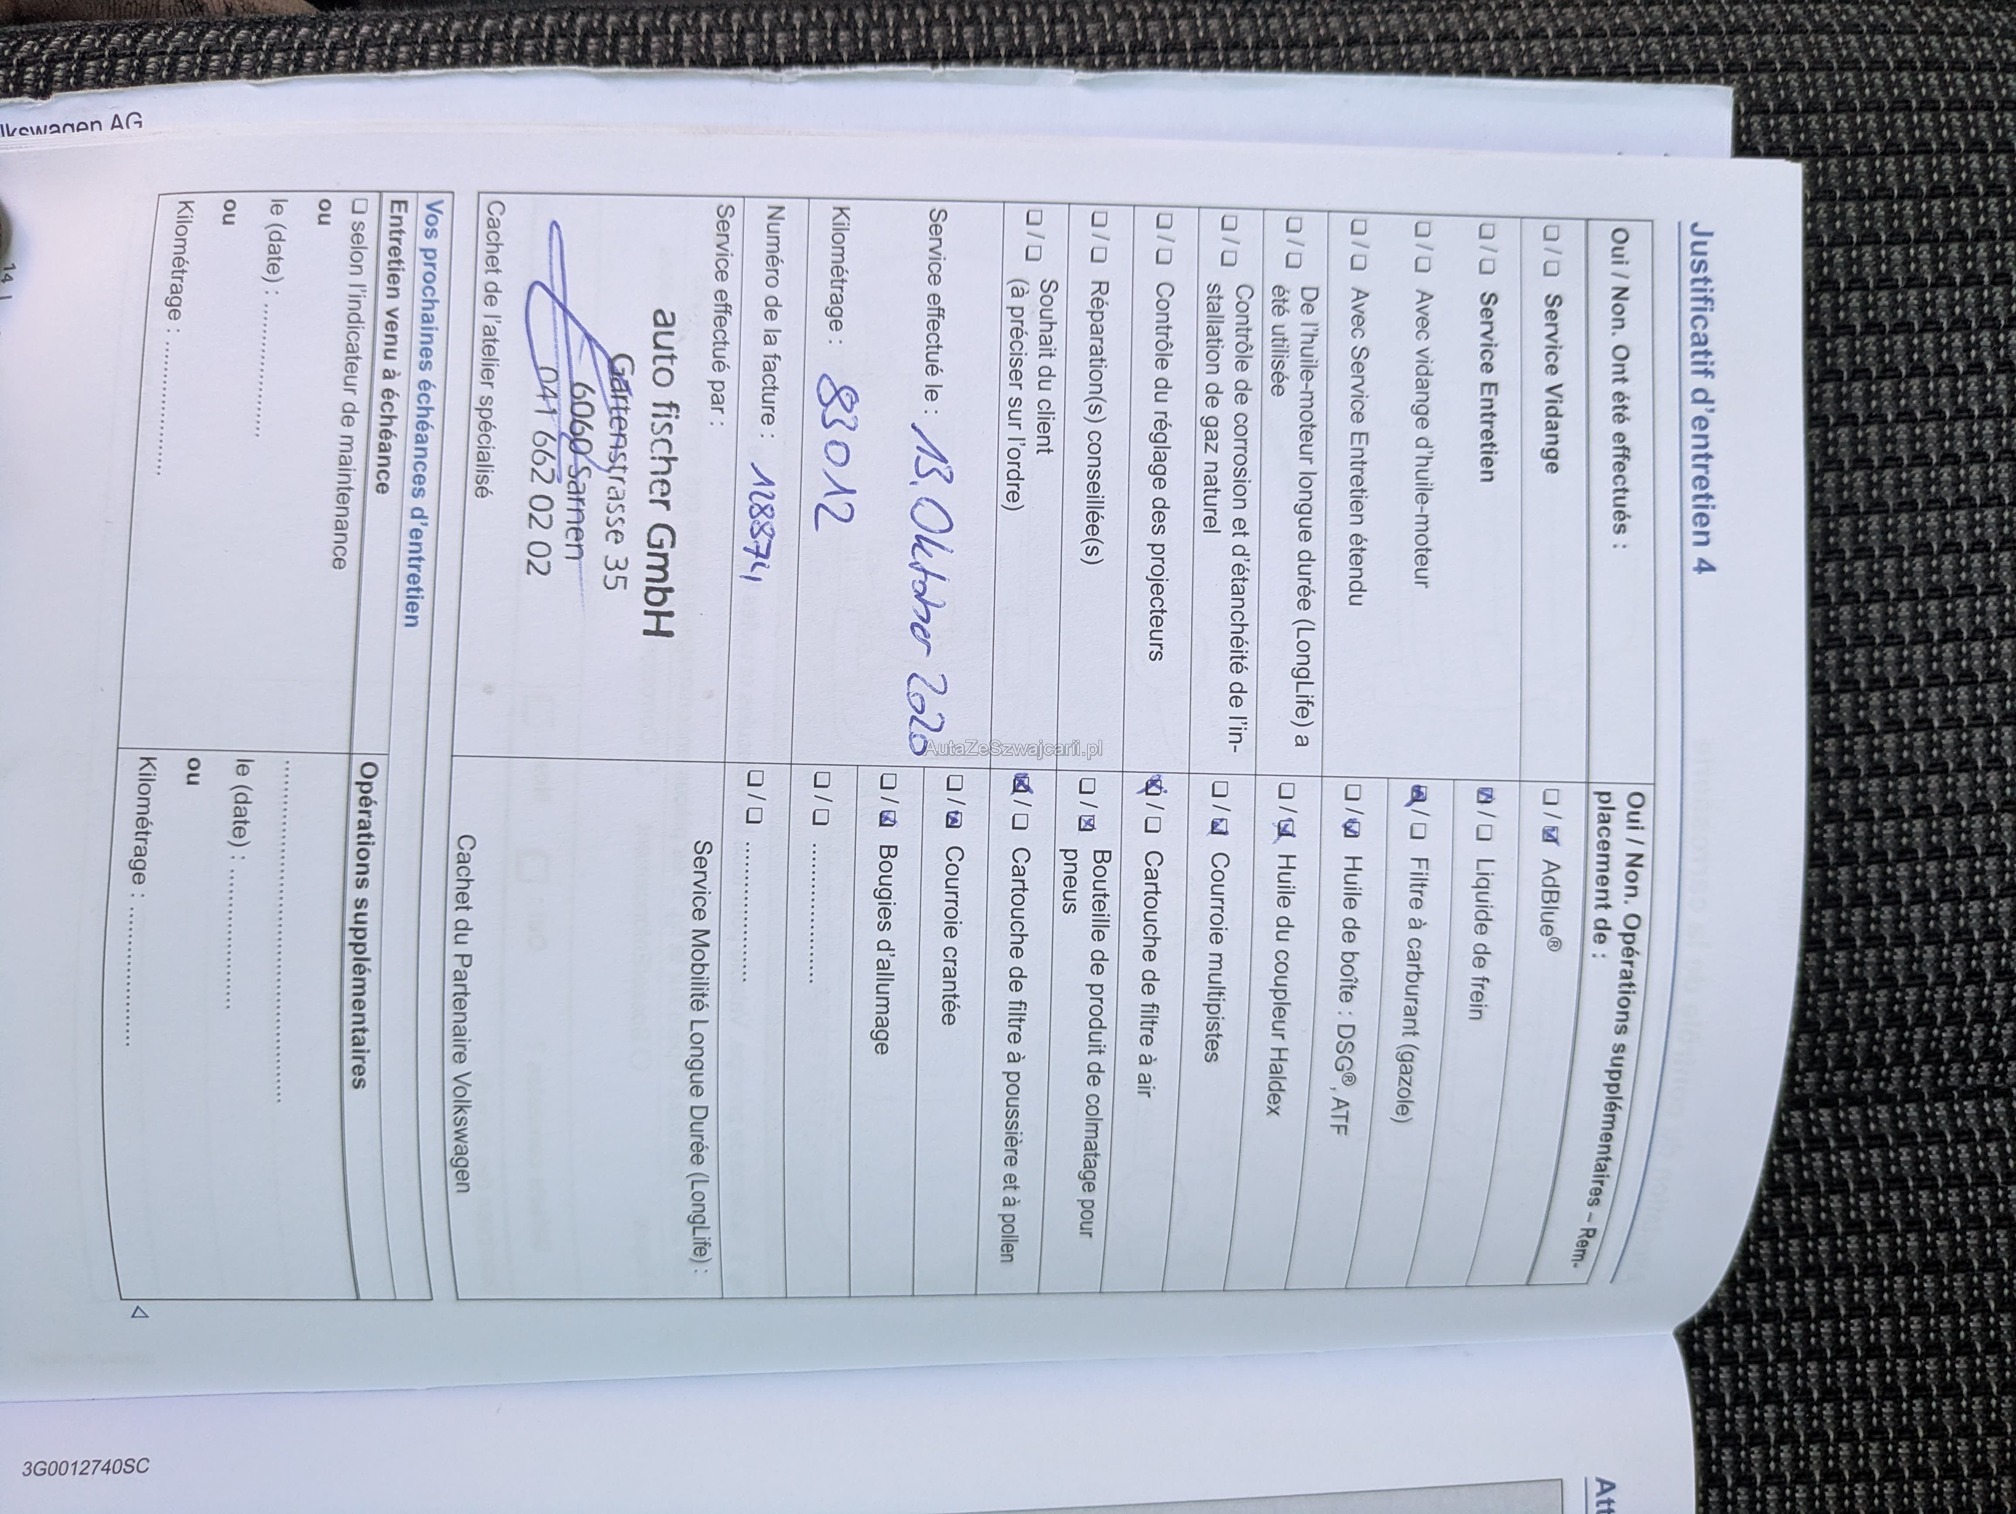 Justificatif d'entretien 4
Oui / Non. Ont été effectués :
❑ / ❑ Service Vidange
❑ / ❑ Service Entretien
❑ / ❑ Avec vidange d'huile-moteur
❑ / ❑ Avec Service Entretien étendu
❑ / ❑ De l'huile-moteur longue durée (LongLife) a
été utilisée
❑ / ❑ Contrôle de corrosion et d'étanchéité de l'in-
stallation de gaz naturel
❑ / ❑ Contrôle du réglage des projecteurs
❑ / ❑ Réparation(s) conseillée(s)
❑ / ❑ Souhait du client
(à préciser sur l'ordre)
Service effectué le : 13. Oktober 2020
Kilométrage : 83012
Numéro de la facture : 128874
Service effectué par :
auto fischer GmbH
Gartenstrasse 35
6060 Sarnen
041 662 02 02
Cachet de l'atelier spécialisé
Oui / Non. Opérations supplémentaires – Rem-
placement de :
❑ / ☒ AdBlue®
☒ / ❑ Liquide de frein
☒ / ❑ Filtre à carburant (gazole)
❑ / ☒ Huile de boîte : DSG®, ATF
❑ / ☒ Huile du coupleur Haldex
❑ / ☒ Courroie multipistes
☒ / ❑ Cartouche de filtre à air
❑ / ☒ Bouteille de produit de colmatage pour
pneus
☒ / ❑ Cartouche de filtre à poussière et à pollen
❑ / ☒ Courroie crantée
❑ / ☒ Bougies d'allumage
❑ / ❑ ....................
❑ / ❑ ....................
Service Mobilité Longue Durée (LongLife) :
Cachet du Partenaire Volkswagen
Vos prochaines échéances d'entretien
Entretien venu à échéance
❑ selon l'indicateur de maintenance
ou
le (date) : ....................
ou
Kilométrage : ....................
Opérations supplémentaires
..................................................
le (date) : ....................
ou
Kilométrage : ....................
14
lkswagen AG
AutaZeSzwajcarii.pl
3G0012740SC
Att